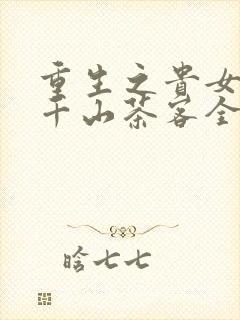 重生之貴女
千山茶客全
晗七七